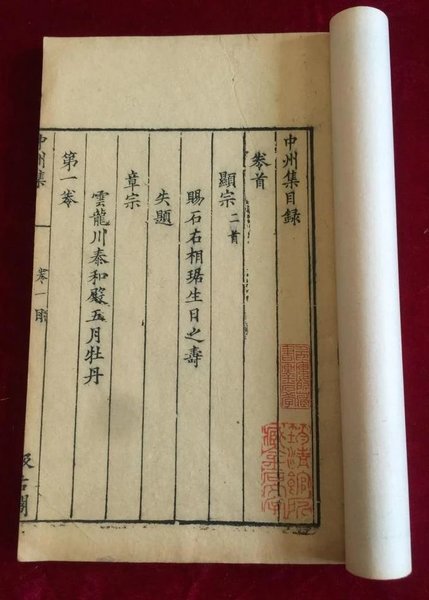 中州集目錄
卷首
顯宗二首
賜石右相琚生日之壽
失題
章宗
雲龍川泰和殿五月牡丹
第一卷
中州集
卷一目
汲古閣